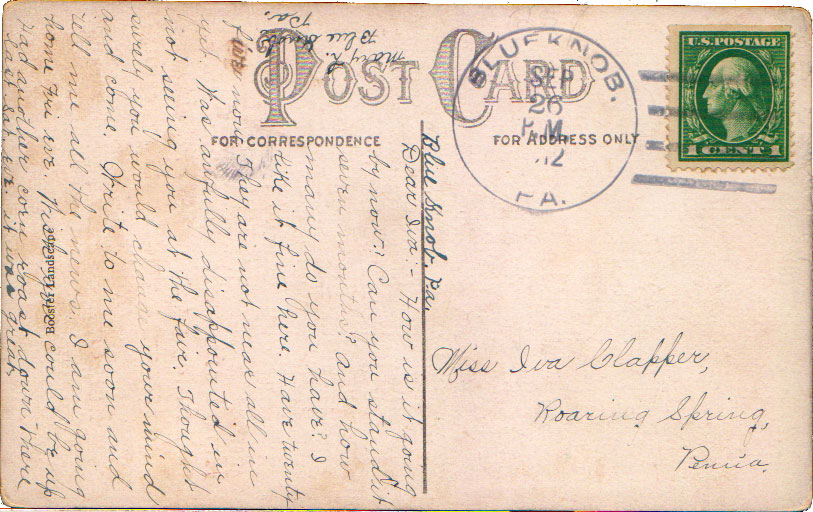 POST CARD
FOR CORRESPONDENCE
FOR ADDRESS ONLY
U.S. POSTAGE
1 CENT 1
BLUE KNOB.
SEP
26
P.M.
12
PA.
Miss Iva Clapper,
Roaring Spring,
Penna.
Blue Knob, Pa.
Dear Iva:- How is it going
by now? Can you stand it
seven months? and how
many do you have? I
like it fine here. Have twenty
five now. They are not near all in
yet. Was awfully disappointed in
not seeing you at the fare. Thought
surely you would change your mind
and come. Write to me soon and
tell me all the news. I am going
home Fri eve. Wish you could be up
Had another corn roast down there
last Sat. eve it was great.
Mary R.
Blue Knob,
Pa.